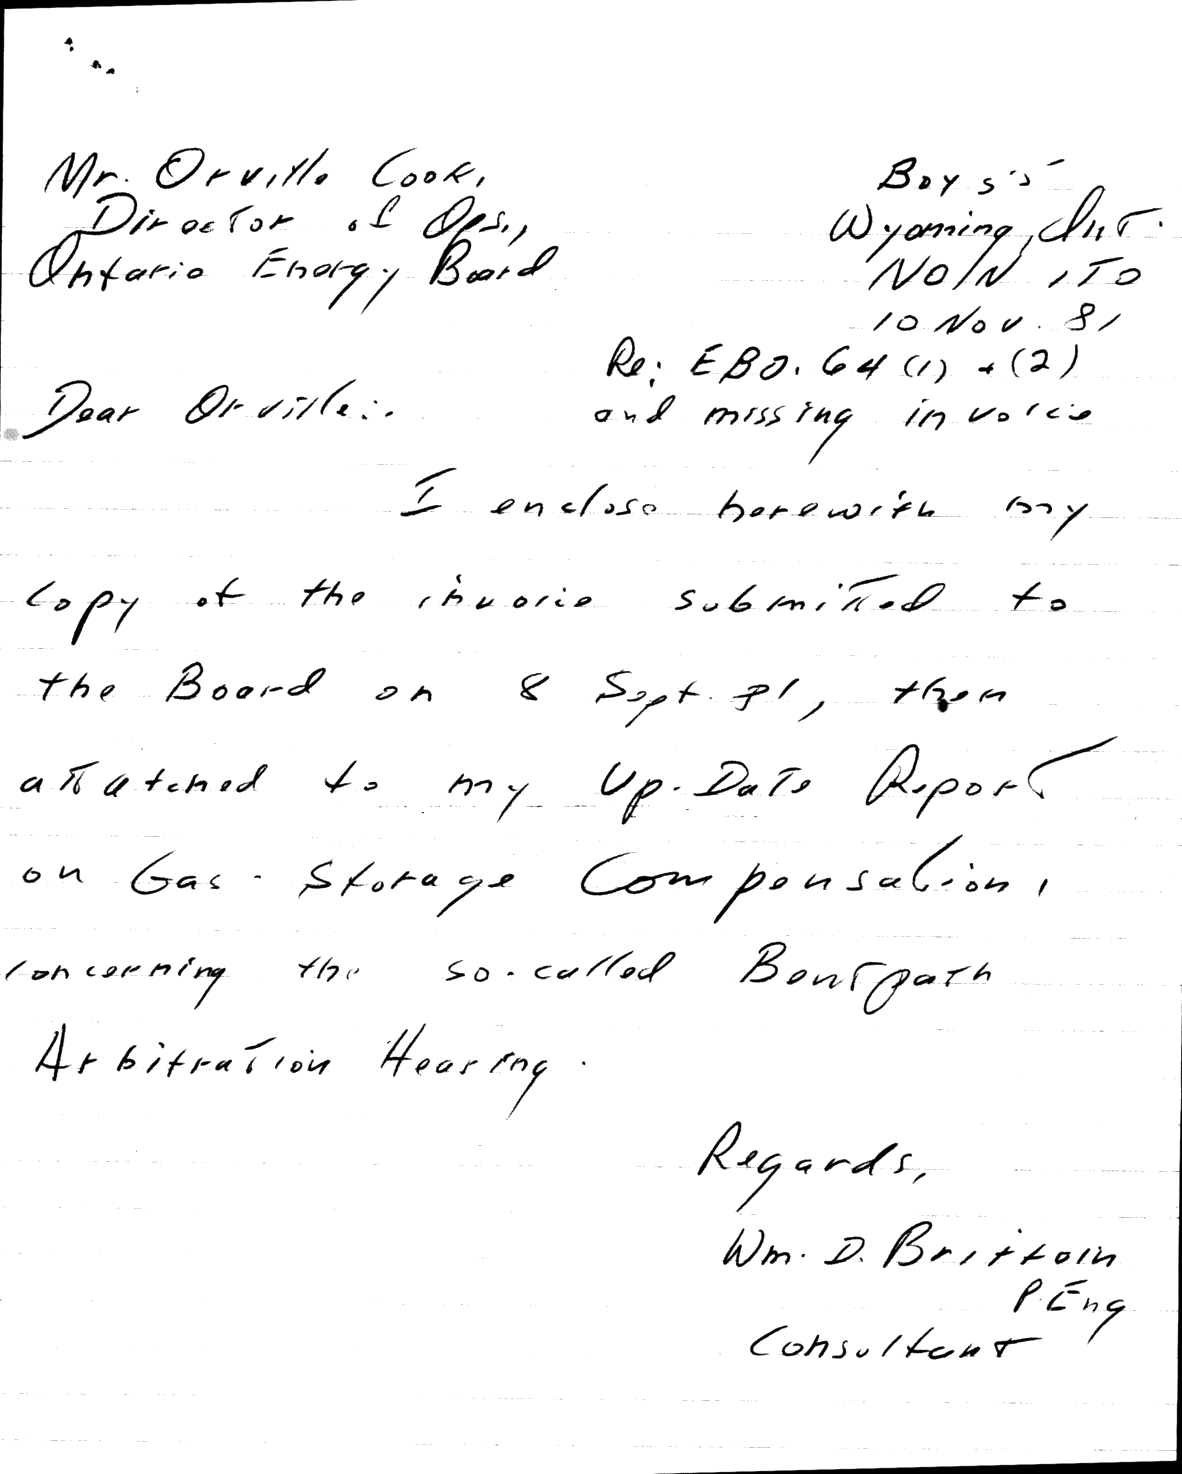 Mr. Orville Cook,
Director of Ops.,
Ontario Energy Board
Wyoming, Ont.
N0N 1T0
10 Nov. 81
Re: EBO. 64 (1) + (2)
and missing invoice
Dear Orville:
I enclose herewith my
copy of the invoice submitted to
the Board on 8 Sept. 81, then
attatched to my Up-Date Report
on Gas-Storage Compensation,
concerning the so-called Bentpath
Arbitration Hearing.
Regards,
Wm. D. Brittain
P. Eng
Consultant